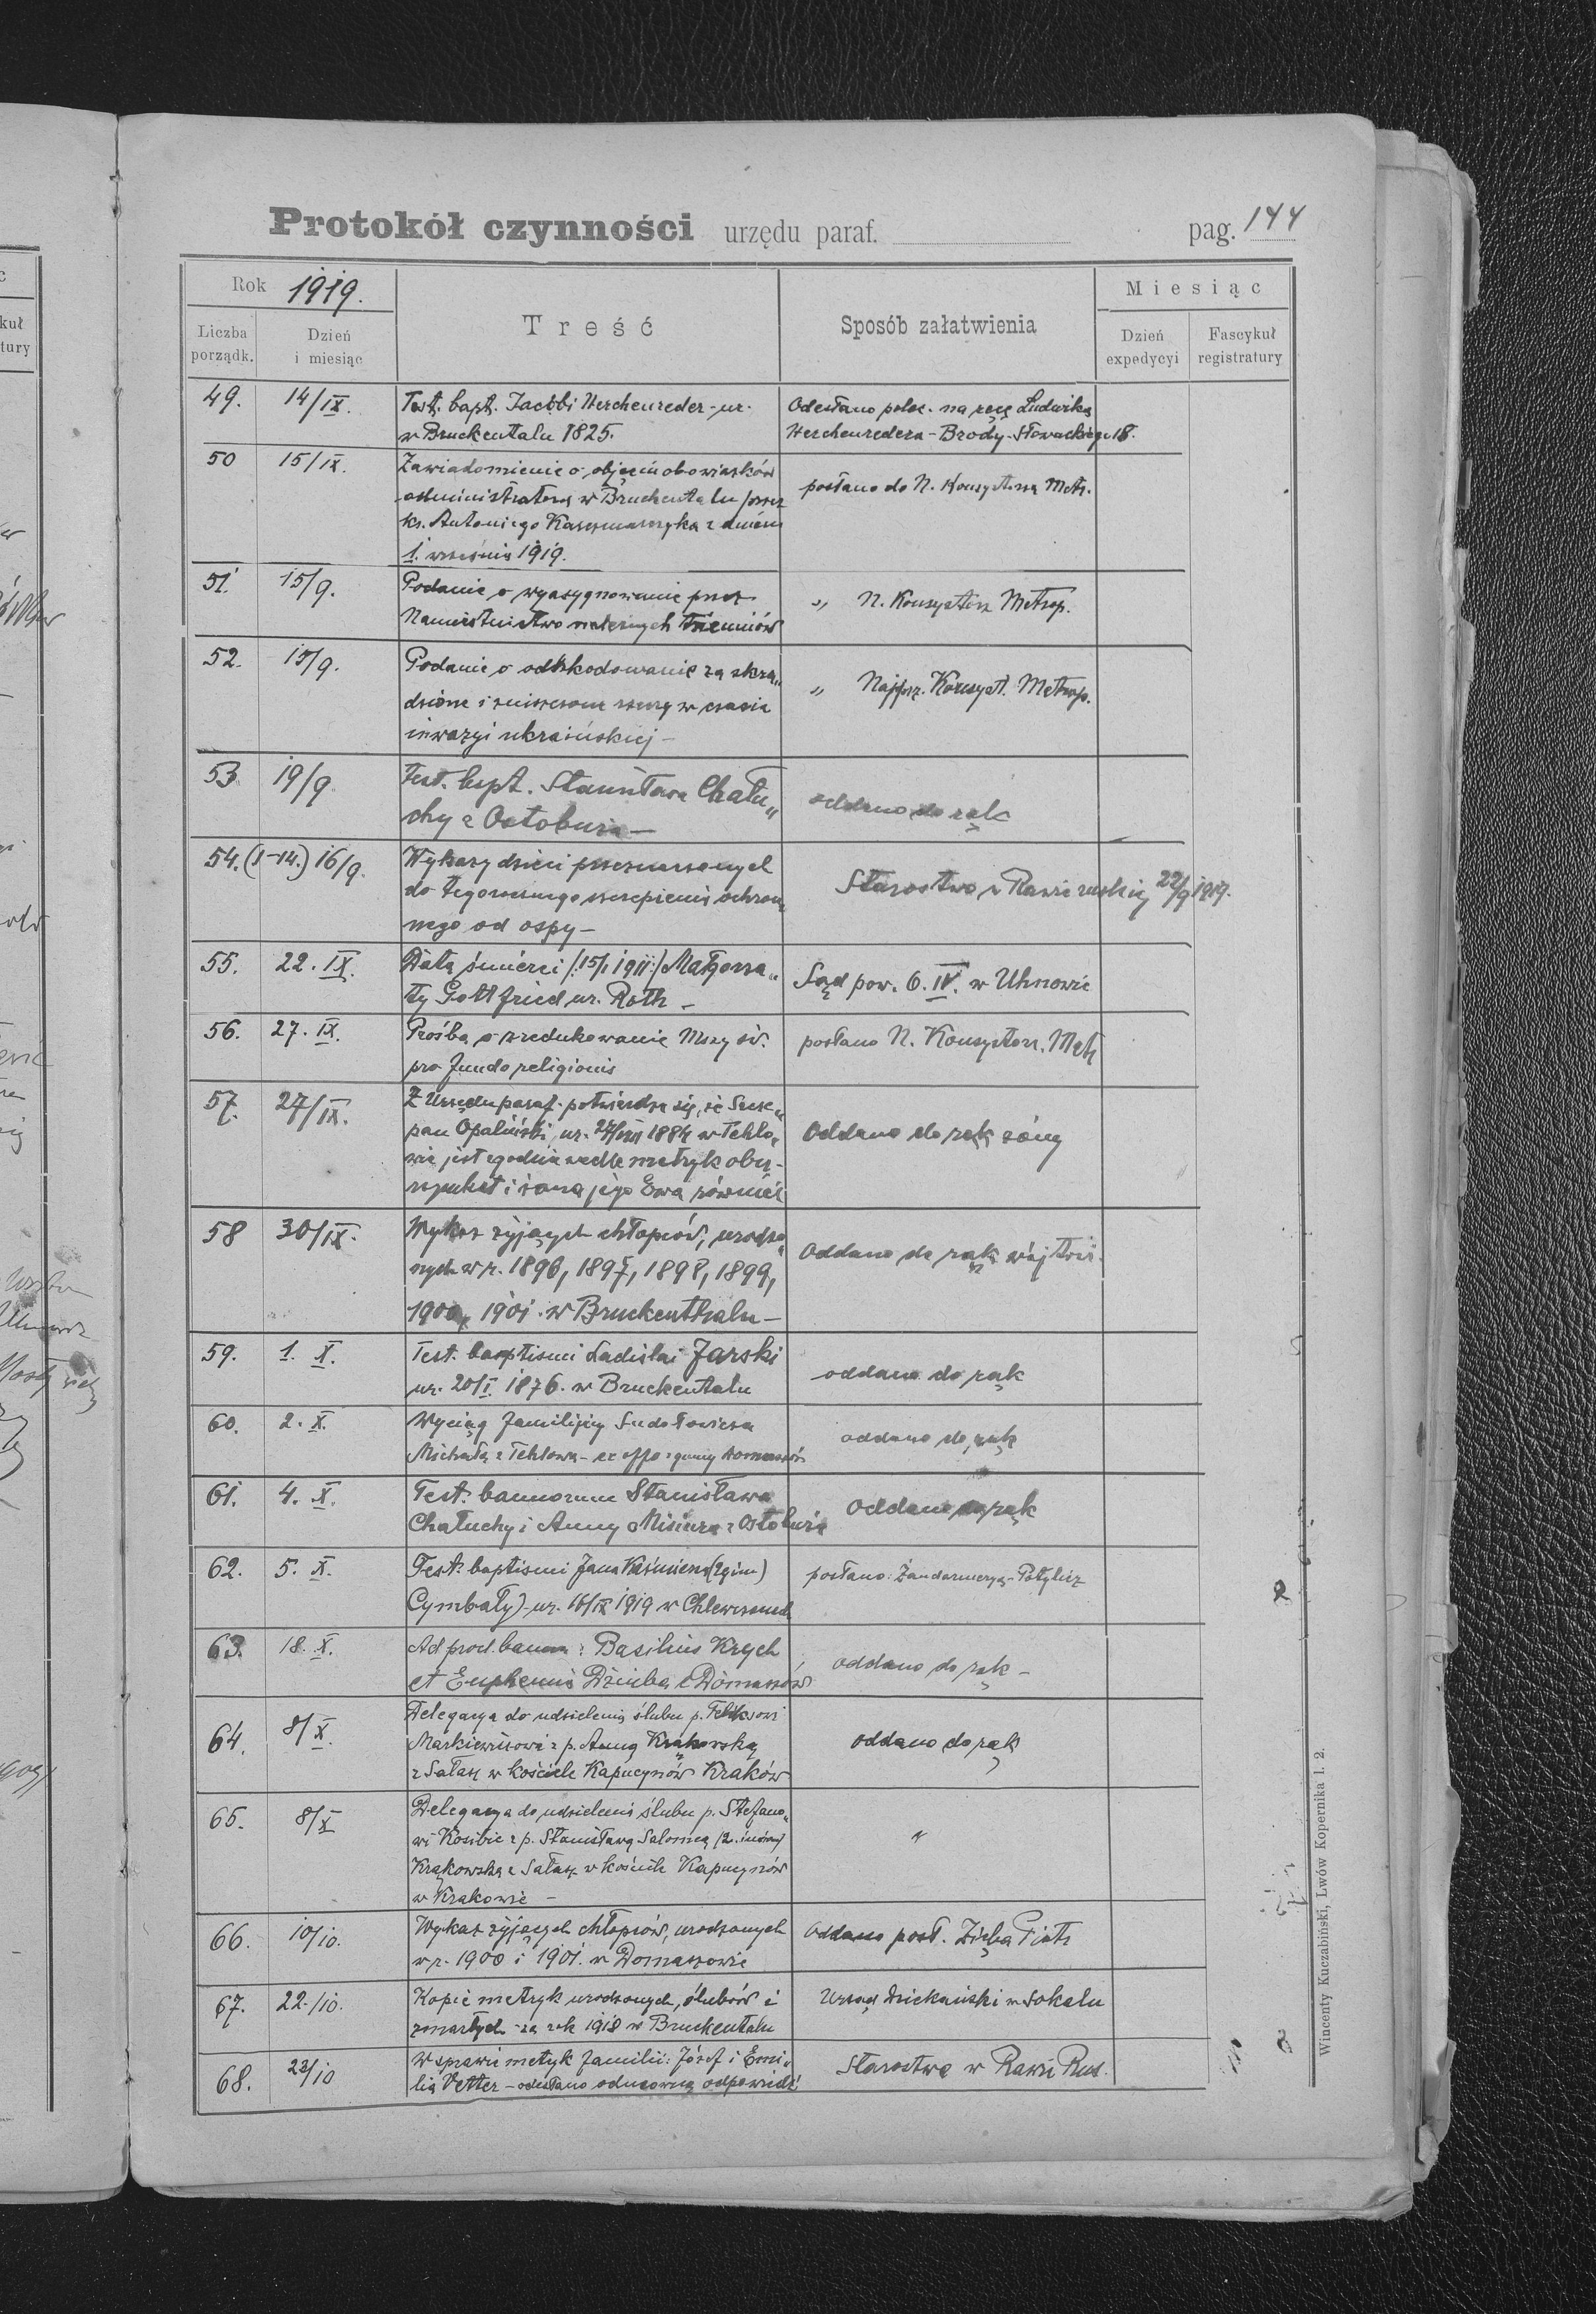 Protokół czynności urzędu paraf. pag. 144
Rok 1919.
Liczba porządk.
Dzień i miesiąc
Treść
Sposób załatwienia
Miesiąc
Dzień expedycyi
Fascykuł registratury
49. 14/IX. Test. bapt. Jacobi Herchenreder - ur.
w Bruckentalu 1825.
Odesłano polec. na ręce Ludwika
Herchenredera - Brody - Słowackiego 18.
50 15/IX. Zawiadomienie o objęciu obowiązków
administratora w Bruckentalu przez
ks. Antoniego Kaczmarczyka z dniem
1. września 1919.
posłano do N. Konsystorza Metr.
51. 15/9. Podanie o wyasygnowanie przez
Namiestnictwo należnych
„ N. Konsystorz Metrop.
52. 15/9. Podanie o odszkodowanie za skra„
dzione i zniszczone rzeczy w czasie
inwazyi ukraińskiej -
„ Najprz. Konsyst. Metrop.
53 19/9 Test. bapt. Stanisława Chału„
chy z Ostobuża -
oddano do rąk
54. (1-14.) 16/9. Wykazy dzieci przeznaczonych
do tegorocznego szczepienia ochron„
nego od ospy -
Starostwo w Rawie ruskiej 22/9 1919.
55. 22. IX. Data śmierci /:15/1 1911:/ Małgorza„
ty Gottfried ur. Roth -
Sąd pow. O. IV. w Uhnowie
56. 27. IX. Prośba o zredukowanie Mszy św.
pro fundo religionis
posłano N. Konsystorz. Metr
57. 27/IX. Z Urzędu paraf. potwierdza się, że Szcze„
pan Opaliński, ur. 1884 w Tehlo„
wie jest zgodnie wedle metryk oby-
i żona jego Ewa również
Oddano do rąk żony
58 30/IX. Wykaz żyjących chłopców, urodzo„
nych w r. 1896, 1897, 1898, 1899,
1900, 1901. w Bruckenthalu -
Oddano do rąk wójtów.
59. 1. X. Test. baptismi Ladislai Jarski
ur. 20/I 1876. w Bruckentalu
oddano do rąk
60. 2. X. Wyciąg familijny Sudołowicza
Michała z Tehlowa - ex offo z gminy Domaszów
oddano do rąk
61. 4. X. Test. bannorum Stanisława
Chałuchy i Anny Misiura z Ostobuża
oddano do rąk
62. 5. X. Test. baptismi Jana Kaźmierza (2gim)
Cymbały) - ur. 16/IX 1919 w Chlewczanach
posłano: Żandarmerya - Potylicz
63. 18. X. Ad procl. bannn: Basilius Krych
et Euphemia Dziuba z Domaszów
oddano do rąk -
64. 8/X. Delegacya do udzielenia ślubu p. Feliksowi
Markiewiczowi z p. Anną Krakowską
z Sałasz w kościele Kapucynów Kraków
oddano do rąk
65. 8/X Delegacya do udzielenia ślubu p. Stefano„
wi Kosibie z p. Stanisławą Salomeą (2. imion)
Krakowską z Sałasz w kościele Kapucynów
w Krakowie -
„
66. 10/10. Wykaz żyjących chłopców, urodzonych
w r. 1900 i 1901. w Domaszowie
Oddano posł. Zięba Piotr
67. 22./10. Kopie metryk urodzonych, ślubów i
zmarłych za rok 1918 w Bruckentalu
Urząd Dziekański w Sokalu
68. 23/10 W sprawie metryk familii: Józef i Emi„
lia Vetter - odesłano odmowną odpowiedź
Starostwo w Rawie Rus.
Wincenty Kuczabiński, Lwów Kopernika l. 2.